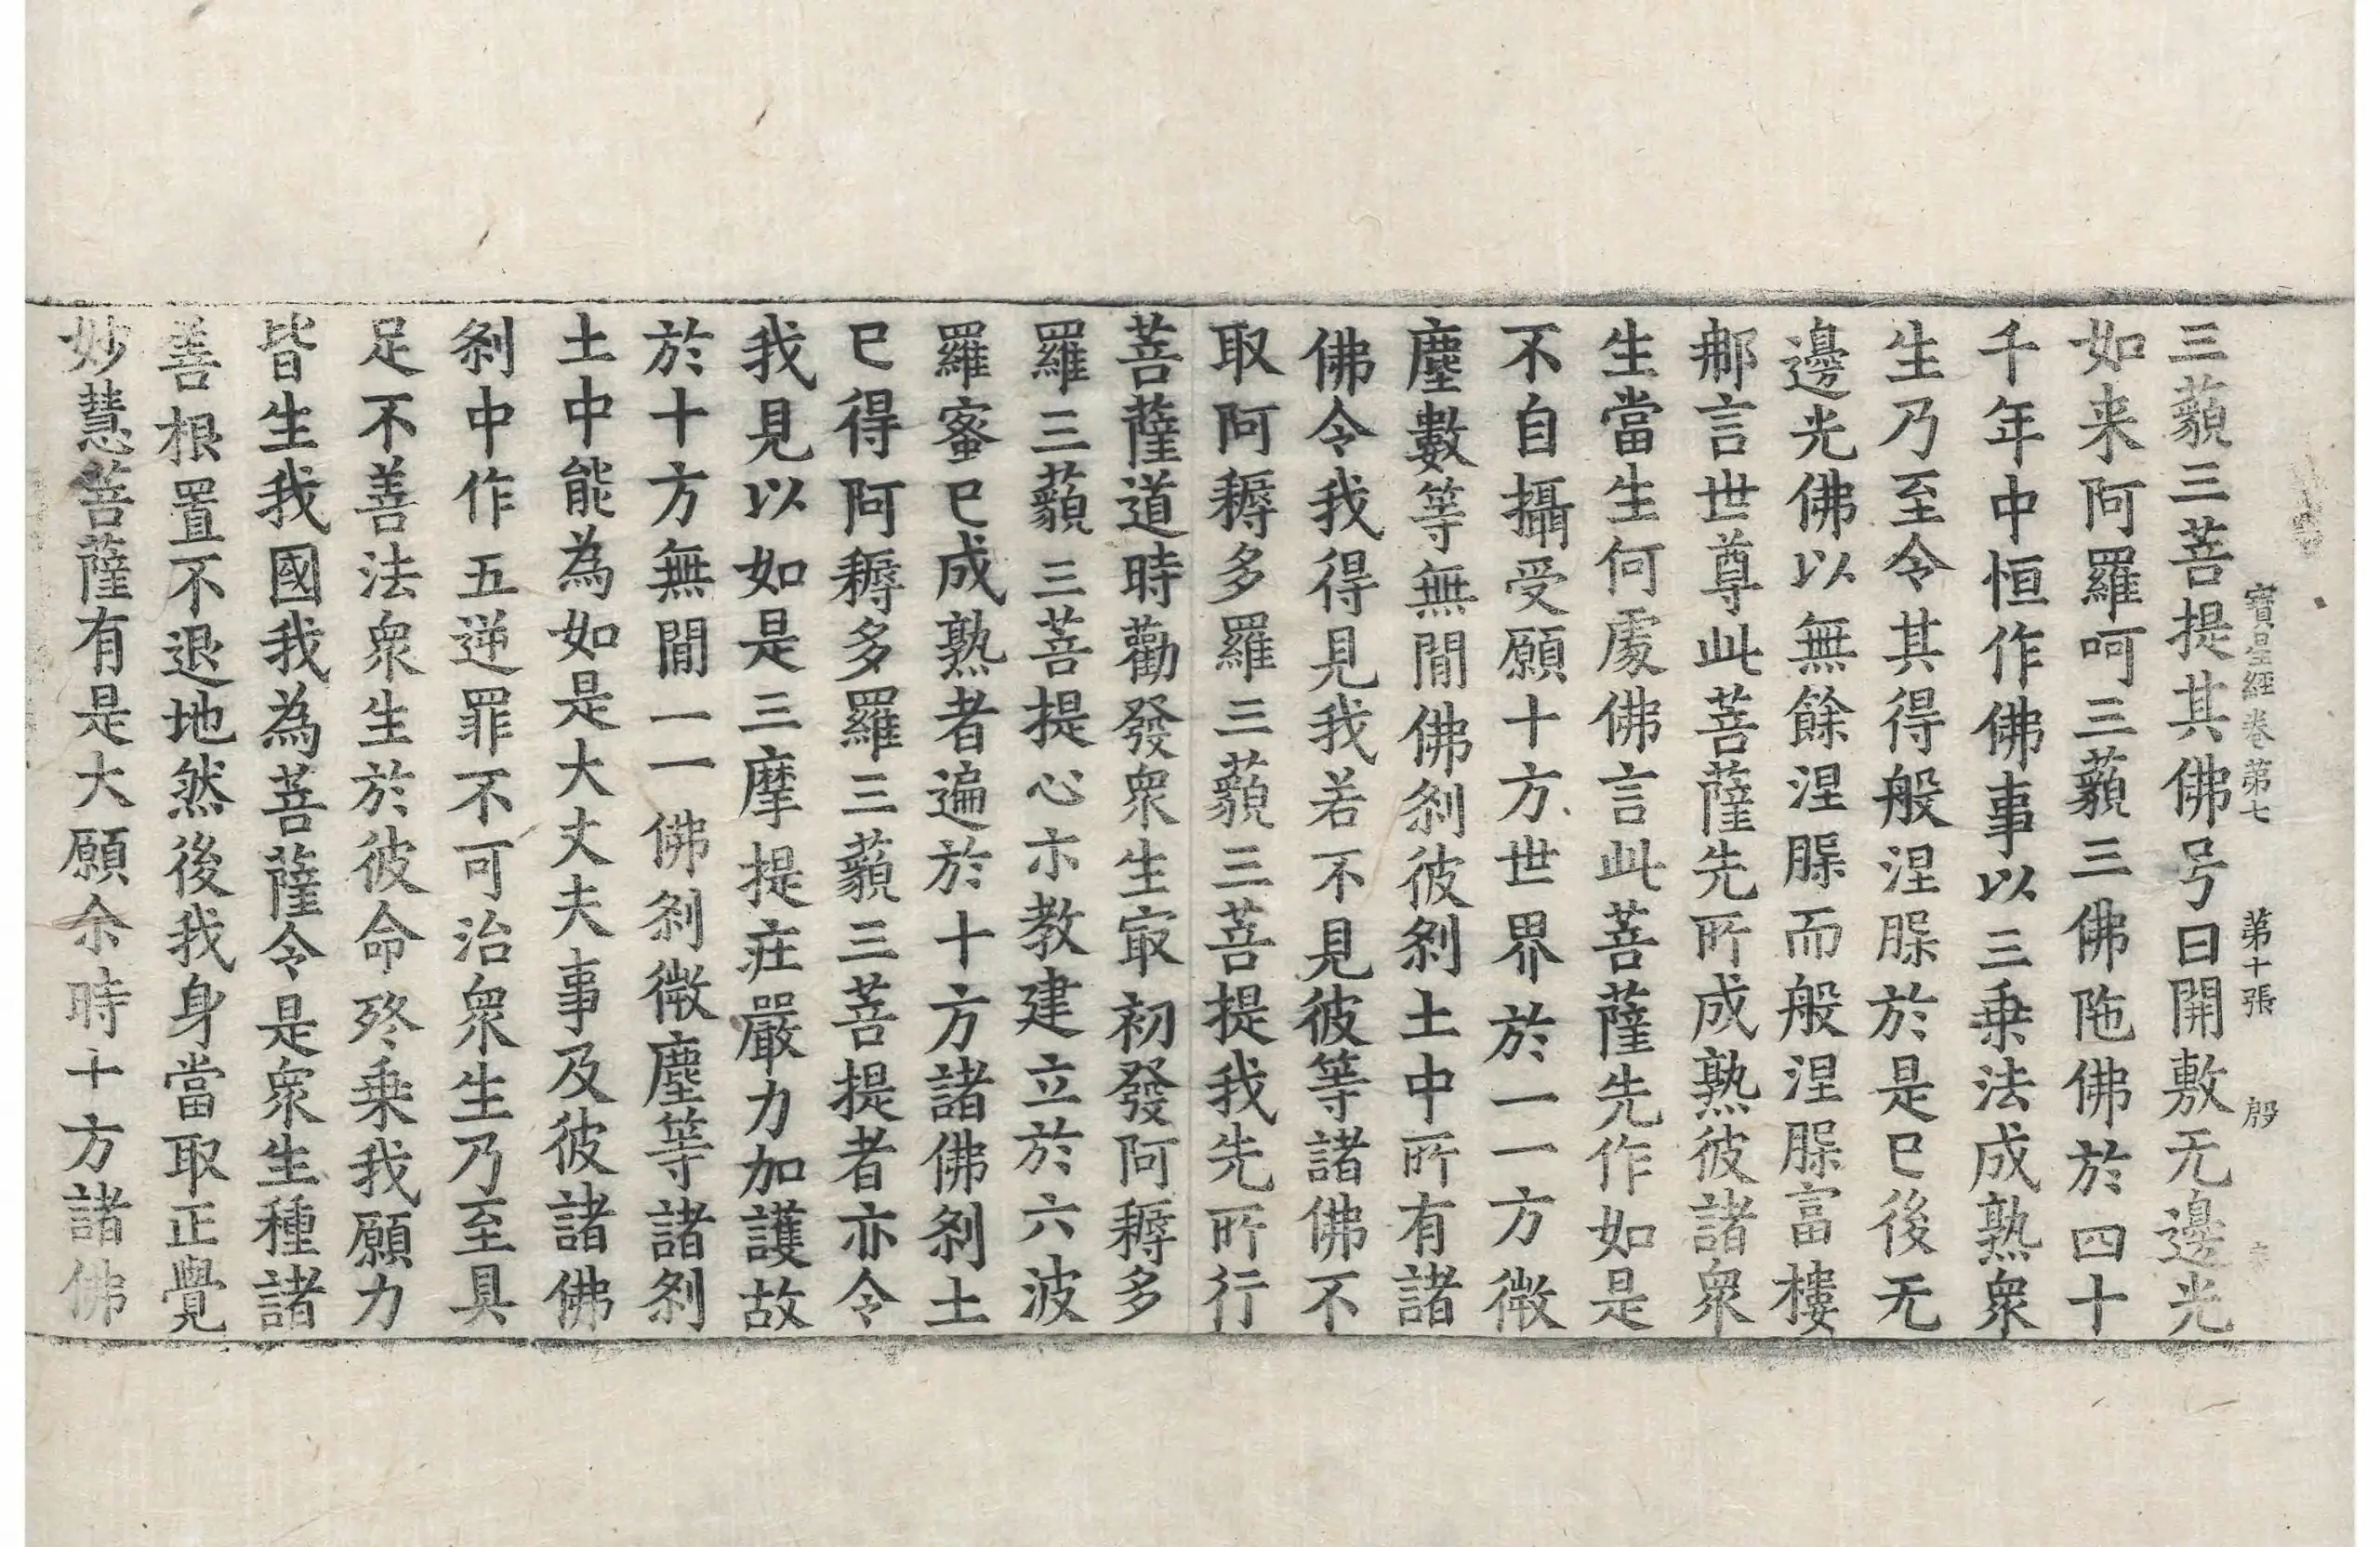 三藐三菩提其佛号曰開敷无邊光
寶星經卷第七　第十張　殷
如来阿羅呵三藐三佛陁佛於四十
千年中恒作佛事以三乗法成熟衆
生乃至令其得般涅腂於是已後无
邊光佛以無餘涅腂而般涅腂富樓
那言世尊此菩薩先所成熟彼諸衆
生當生何處佛言此菩薩先作如是
不自攝受願十方世界於一一方微
塵數等無閒佛刹彼刹土中所有諸
佛令我得見我若不見彼等諸佛不
取阿耨多羅三藐三菩提我先所行
菩薩道時勸發衆生㝡初發阿耨多
羅三藐三菩提心亦教建立於六波
羅蜜已成熟者遍於十方諸佛刹土
已得阿耨多羅三藐三菩提者亦令
我見以如是三摩提莊嚴力加護故
於十方無閒一一佛刹微塵等諸刹
土中能為如是大丈夫事及彼諸佛
刹中作五逆罪不可治衆生乃至具
足不善法衆生於彼命終乗我願力
皆生我國我為菩薩令是衆生種諸
善根置不退地然後我身當取正覺
妙慧菩薩有是大願尒時十方諸佛